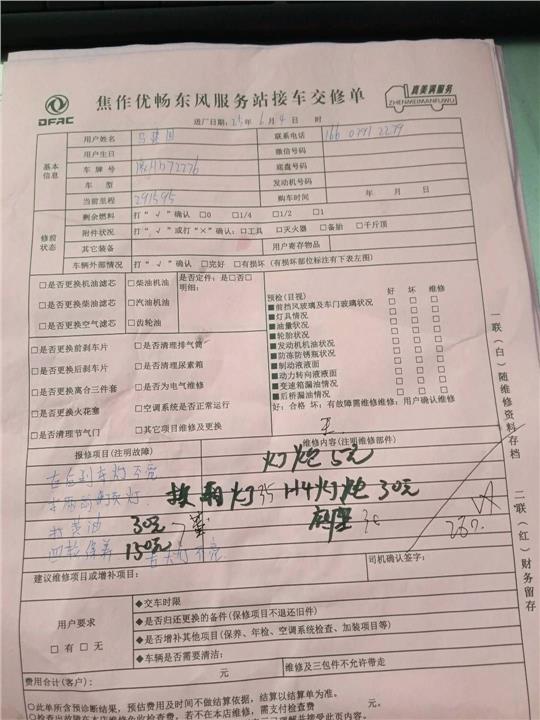 DFAC
焦作优畅东风服务站接车交修单
真美满服务
ZHENMEIMANFUWU
送厂日期: 23年 6月 4日 时
用户姓名 联系电话 166 0391 2279
用户生日 微信号码
基本信息 车牌号 底盘号码
车型 发动机号码
当前里程 291595 购车时间 年 月 日
剩余燃料 打“√”确认 □0 □1/4 □1/2 □1
修前状态 附件状况 打“√”或打“×”确认:□工具 □灭火器 □备胎 □千斤顶
其它装备 用户寄存物品
车辆外部情况 打“√”确认 □完好 □有损坏(有损坏部位标注有下表左图)
□是否更换机油滤芯 □柴油机油 是否定件:是□否□
明细:
□是否更换柴油滤芯 □汽油机油
□是否更换空气滤芯 □齿轮油
预检(目视) 好 坏 维修
■前挡风玻璃及车门玻璃状况 □ □ □
■灯具情况 □ □ □
■油量状况 □ □ □
■轮胎状况 □ □ □
■发动机机油状况 □ □ □
■防冻防锈瓶状况 □ □ □
■制动液液面 □ □ □
■动力转向液液面 □ □ □
■变速箱漏油情况 □ □ □
■后桥漏油情况 □ □ □
好:合格 坏:有故障需维修维用:用户确认维修
□是否更换前刹车片 □是否清理排气筒
□是否更换后刹车片 □是否清理尿素箱
□是否更换离合三件套 □是否为电气维修
□是否更换火花塞 □空调系统是否正常运行
□是否清理节气门 □其它项目维修及更换
报修项目(注明故障) 维修内容(注明维修部件)
右后刹车灯不亮 灯炮 5元
换 灯 35 H4灯炮 30元
打黄油 30元
四轮保养 150元 右大灯不亮
司机确认签字:
建议维修项目或增补项目:
用户要求
□有 □无
◆交车时限
◆是否归还更换的备件(保修项目不退还旧件)
◆是否增补其他项目(保养、年检、空调系统检查、加装项目等)
◆车辆是否需要清洁:
费用合计(客户): 元 维修及三包件不允许带走
◇此单所含预诊断结果,预估费用及时间不做结算依据,结算以结算单为准。 元
一联(白)随维修资料存档
二联(红)财务留存